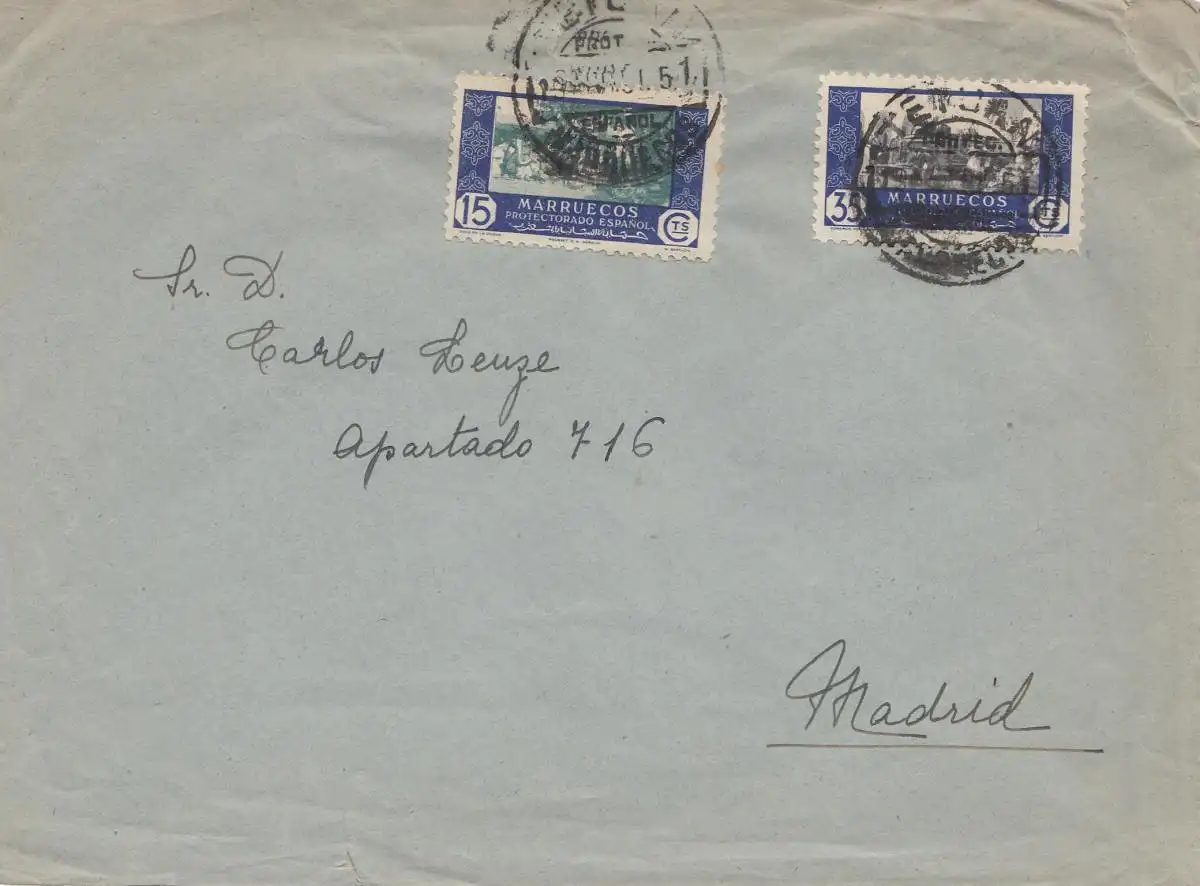 PROT
51
ESPAÑOL
MARRUECOS
15
MARRUECOS
PROTECTORADO ESPAÑOL
CTS
PROTEC.
35
MARRUECOS
CTS
Sr. D.
Carlos Leuze
Apartado 716
Madrid